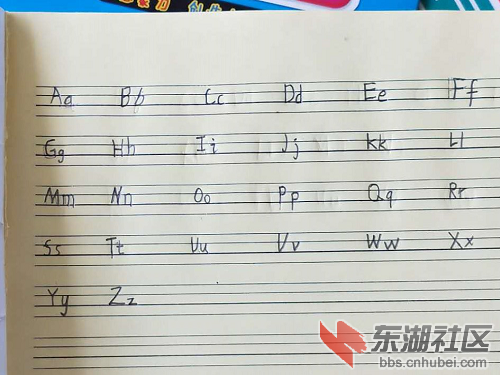 Aa Bb Cc Dd Ee Ff
Gg Hh Ii Jj Kk Ll
Mm Nn Oo Pp Qq Rr
Ss Tt Uu Vv Ww Xx
Yy Zz
东湖社区
bbs.cnhubei.com